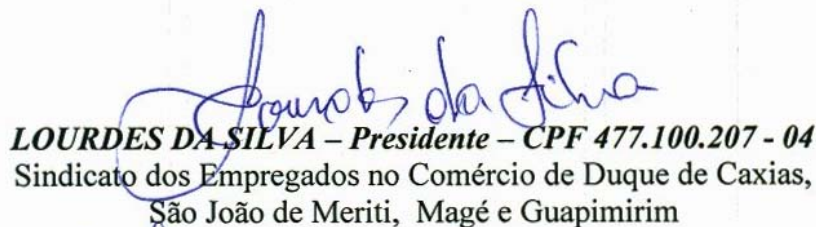 Lourdes da Silva
LOURDES DA SILVA – Presidente – CPF 477.100.207 - 04
Sindicato dos Empregados no Comércio de Duque de Caxias,
São João de Meriti, Magé e Guapimirim